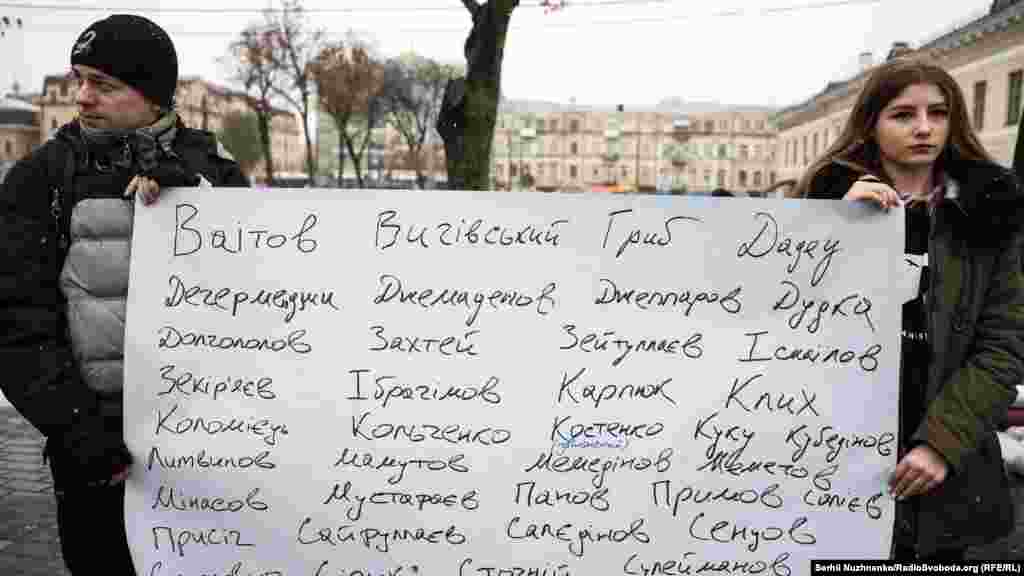 Ваітов Вигівський Гриб Дадеу
Дегермеджи Джемаденов Джеппаров Дудка
Долгополов Захтей Зейтуллаєв Ісмаілов
Зекір'яєв Ібрагімов Карпюк Клих
Коломієць Кольченко Костенко Куку Кубедінов
Литвинов Мамутов Мемедінов Мометов
Мінасов Мустафаєв Панов Примов Салієв
Присіч Сайфуллаєв Салєдінов Сенцов
Стогній Сулейманов
Serhii Nuzhnenko/RadioSvoboda.org (RFE/RL)